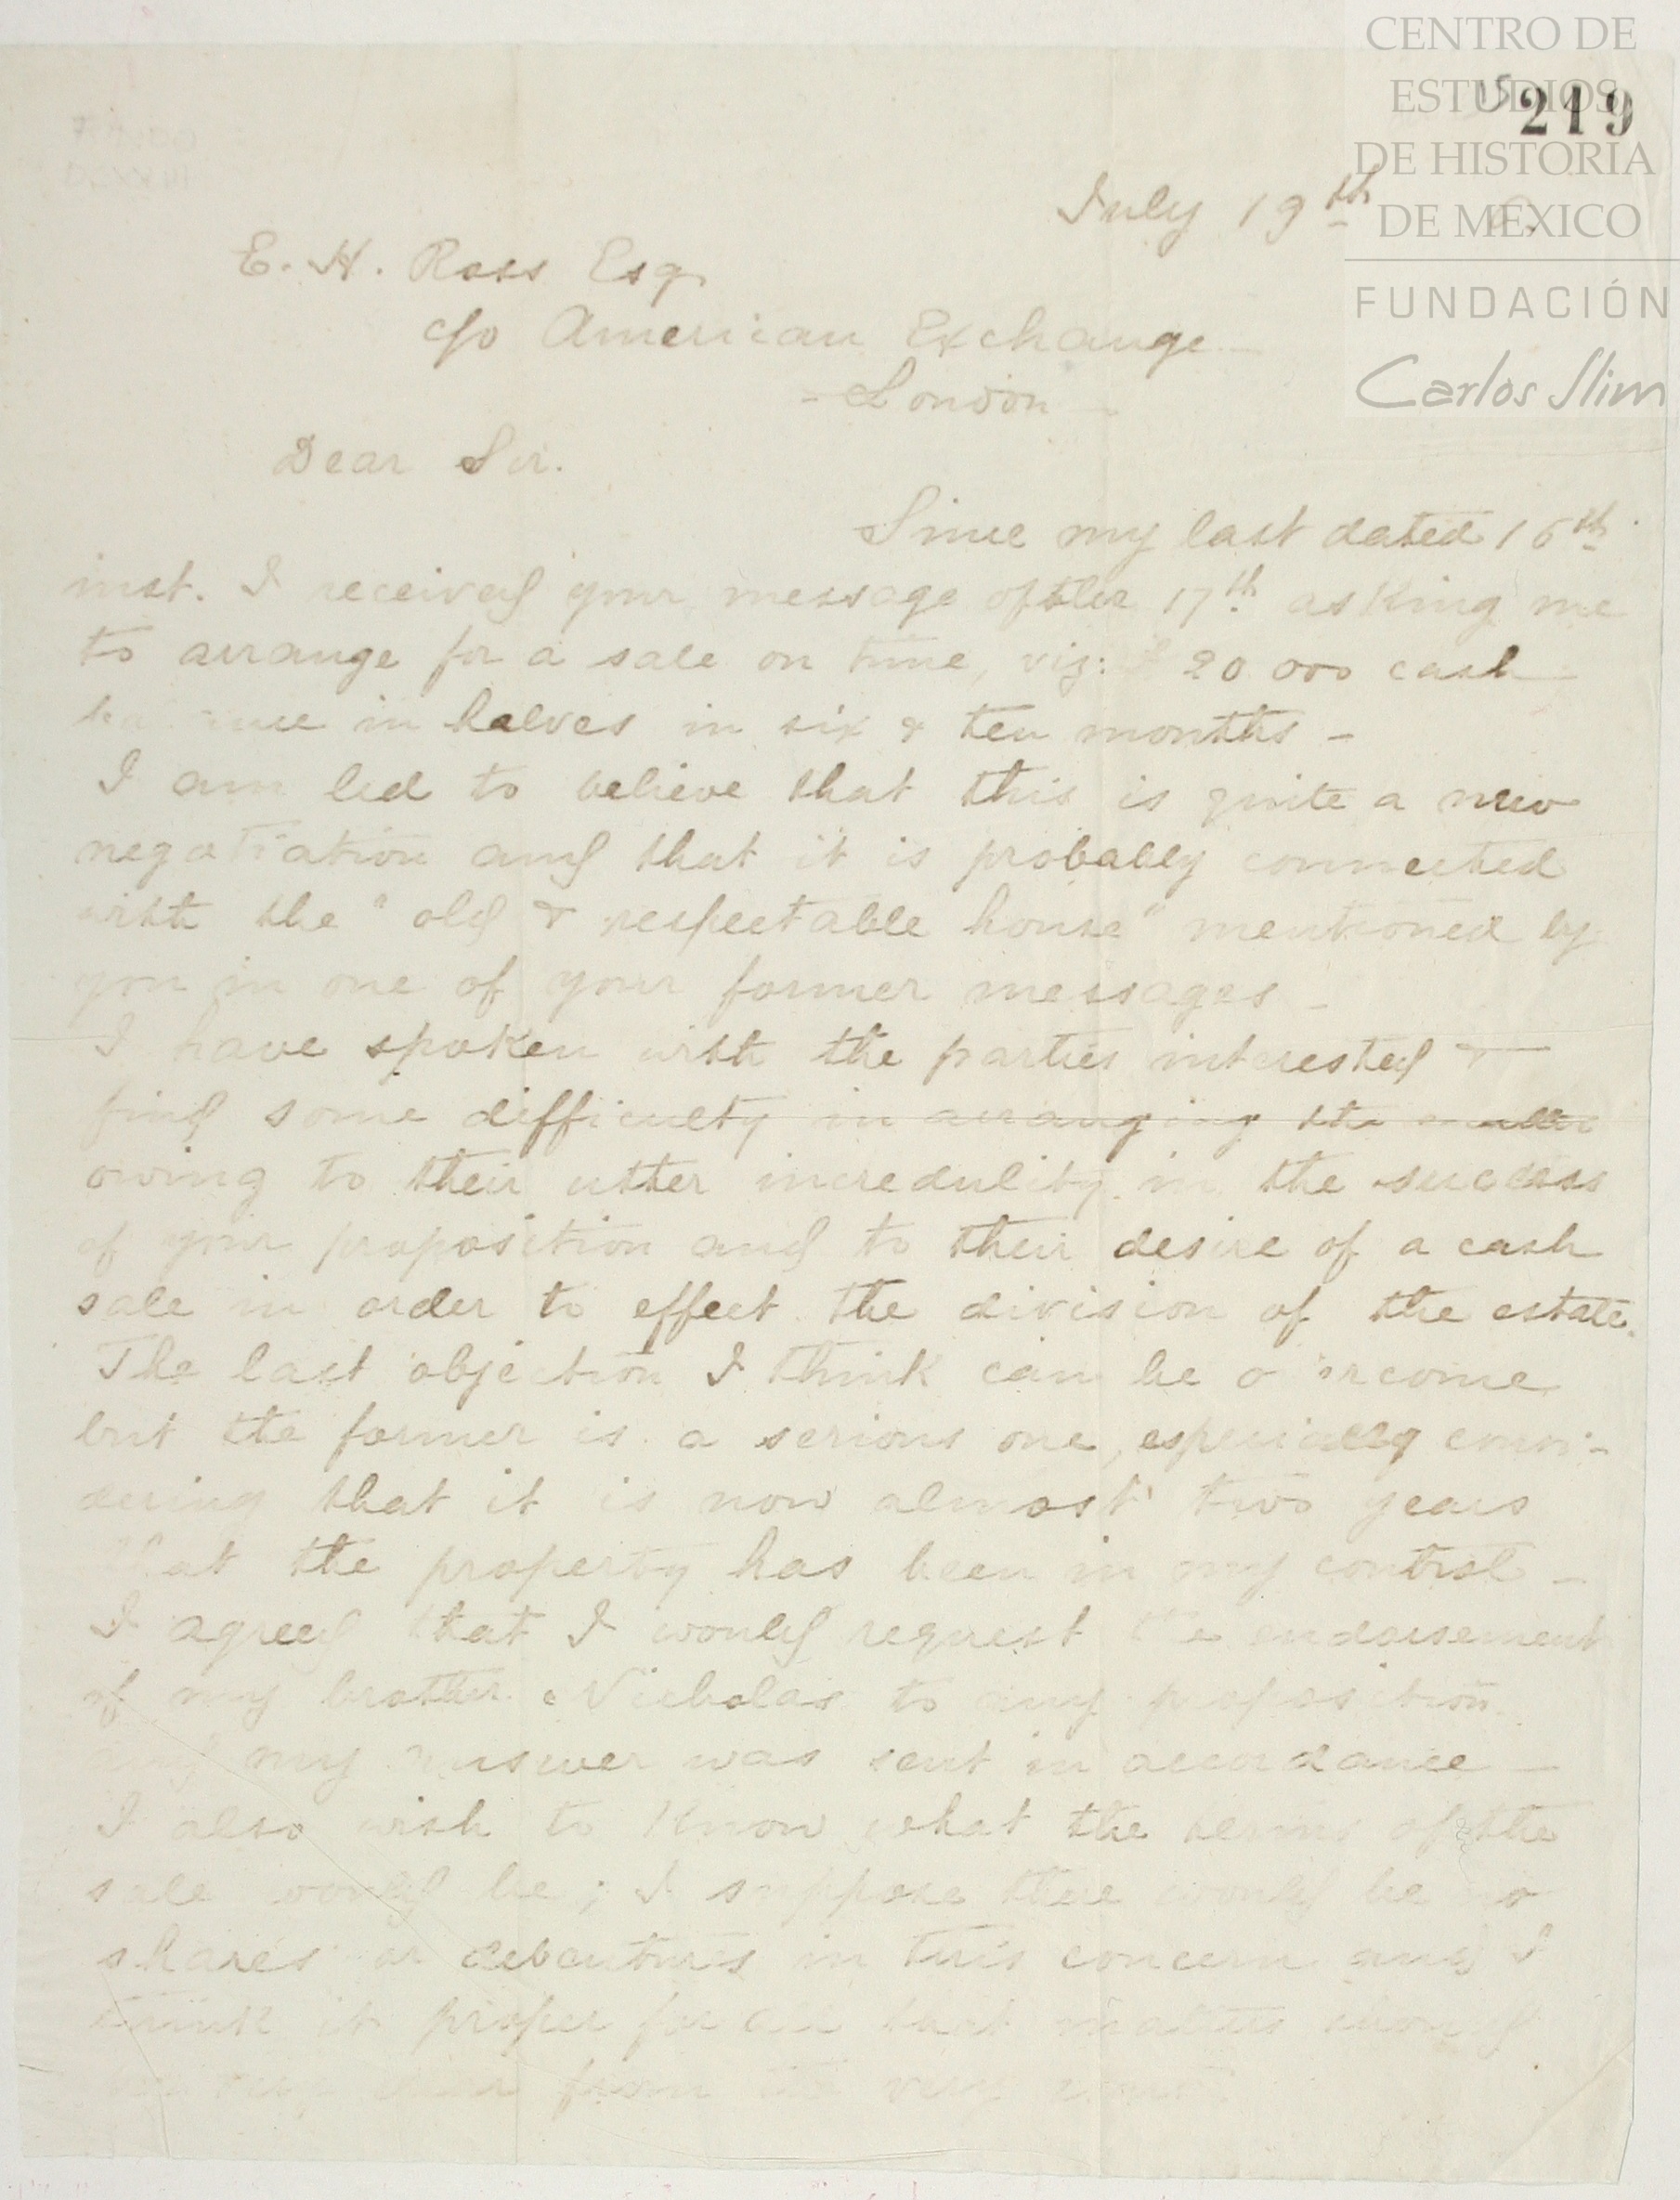 CENTRO DE
ESTUDIOS
219
DE HISTORIA
DE MEXICO
FUNDACIÓN
Carlos Slim
July 19th
E. H. Ross Esq.
c/o American Exchange
- London -
Dear Sir.
Since my last dated 16th
inst. I received your message of the 17th asking me
to arrange for a sale on time, viz: 20 000 cash
balance in halves in six & ten months -
I am led to believe that this is quite a new
negotiation and that it is probably connected
with the "old & respectable house" mentioned by
you in one of your former messages -
I have spoken with the parties interested &
find some difficulty in arranging the matter
owing to their utter incredulity in the success
of your proposition and to their desire of a cash
sale in order to effect the division of the estate.
The last objection I think can be overcome
but the former is a serious one, especially consi-
dering that it is now almost two years
that the property has been in my control -
I agreed that I would request the endorsement
of my brother Nicholas to any proposition
and my answer was sent in accordance -
I also wish to know what the terms of the
sale would be; I suppose there would be no
shares or debentures in this concern and I
think it proper for all that matters should
be very clear from the very